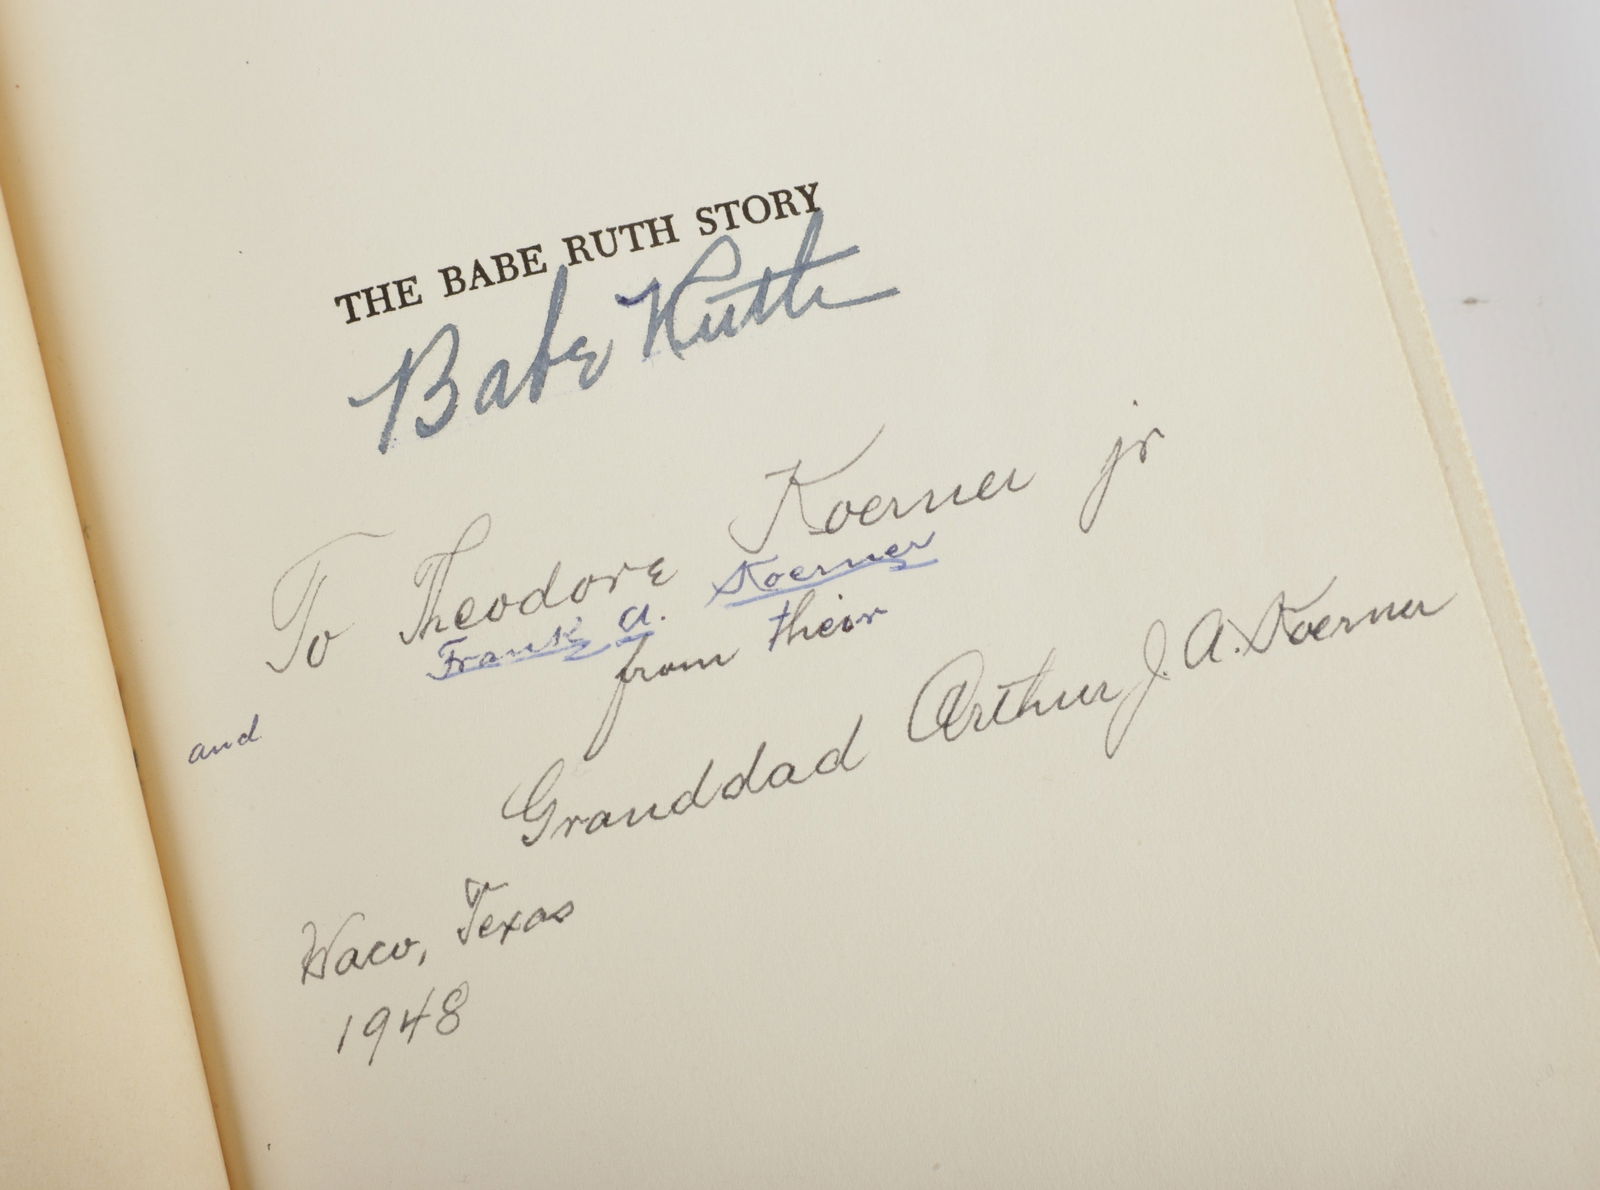 THE BABE RUTH STORY
Babe Ruth
To Theodore Koerner jr
and Frank A. Koerner
from their
Granddad Arthur J. A. Koerner
Waco, Texas
1948